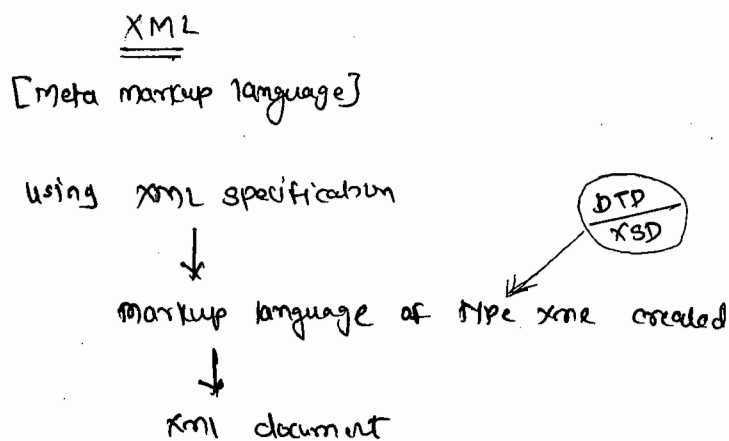 XML
[Meta markup language]
using XML specification
DTD
XSD
markup language of type xml created
xml document